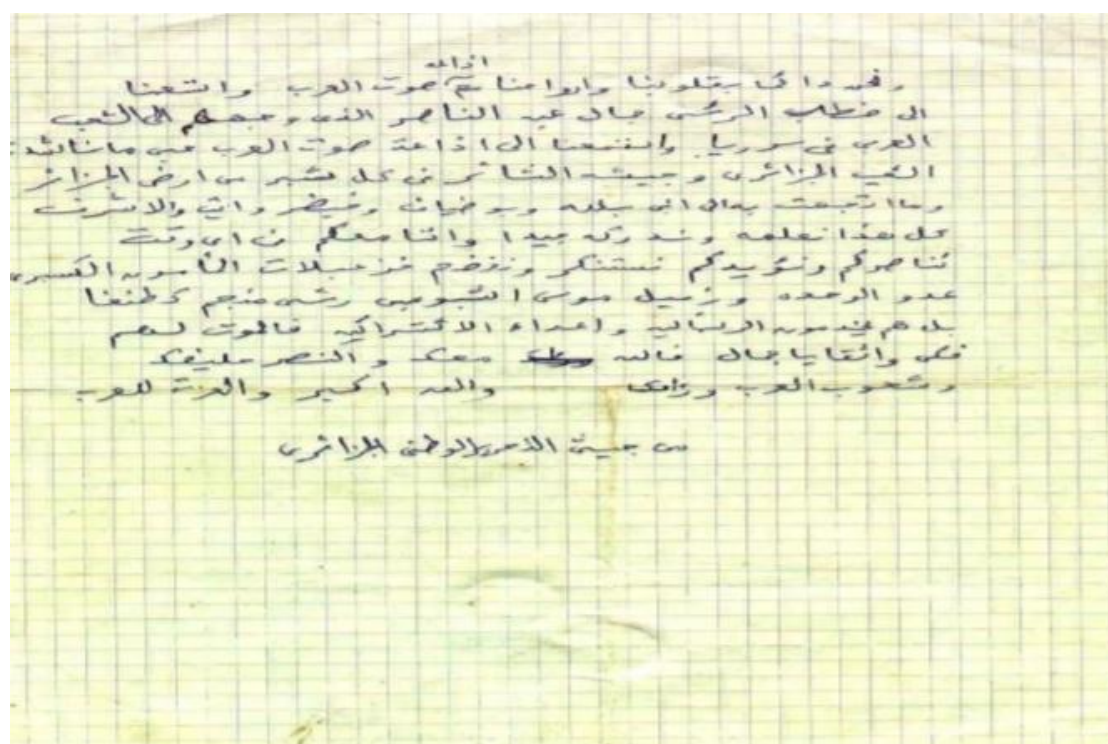 اذاعة
ونحن دائما بقلوبنا وارواحنا مع صوت العرب واستمعنا
الى خطب الرئيس جمال عبد الناصر الذى وجهها الى الشعب
العربى فى سوريا واستمعنا الى اذاعة صوت العرب عن
الشعب الجزائرى وجيشه الثائر فى كل شبر من ارض الجزائر
وما اذيعت به الى ابن بلله وبو ضياف وخيضر وايت والاشرف
كل هذا نعلمه وندركه جيدا واننا معكم فى اى وقت
نناصركم ونؤيدكم نستنكر
عدو الوحده وزميل موسى
بل هم يخدمون الرأسماليه واعداء الاشتراكيه فالموت لهم
فكن واثقا يا جمال فالله معك والنصر حليفك
وشعوب العرب والله اكبر والعزة للعرب
من جيش التحرير الوطنى الجزائرى